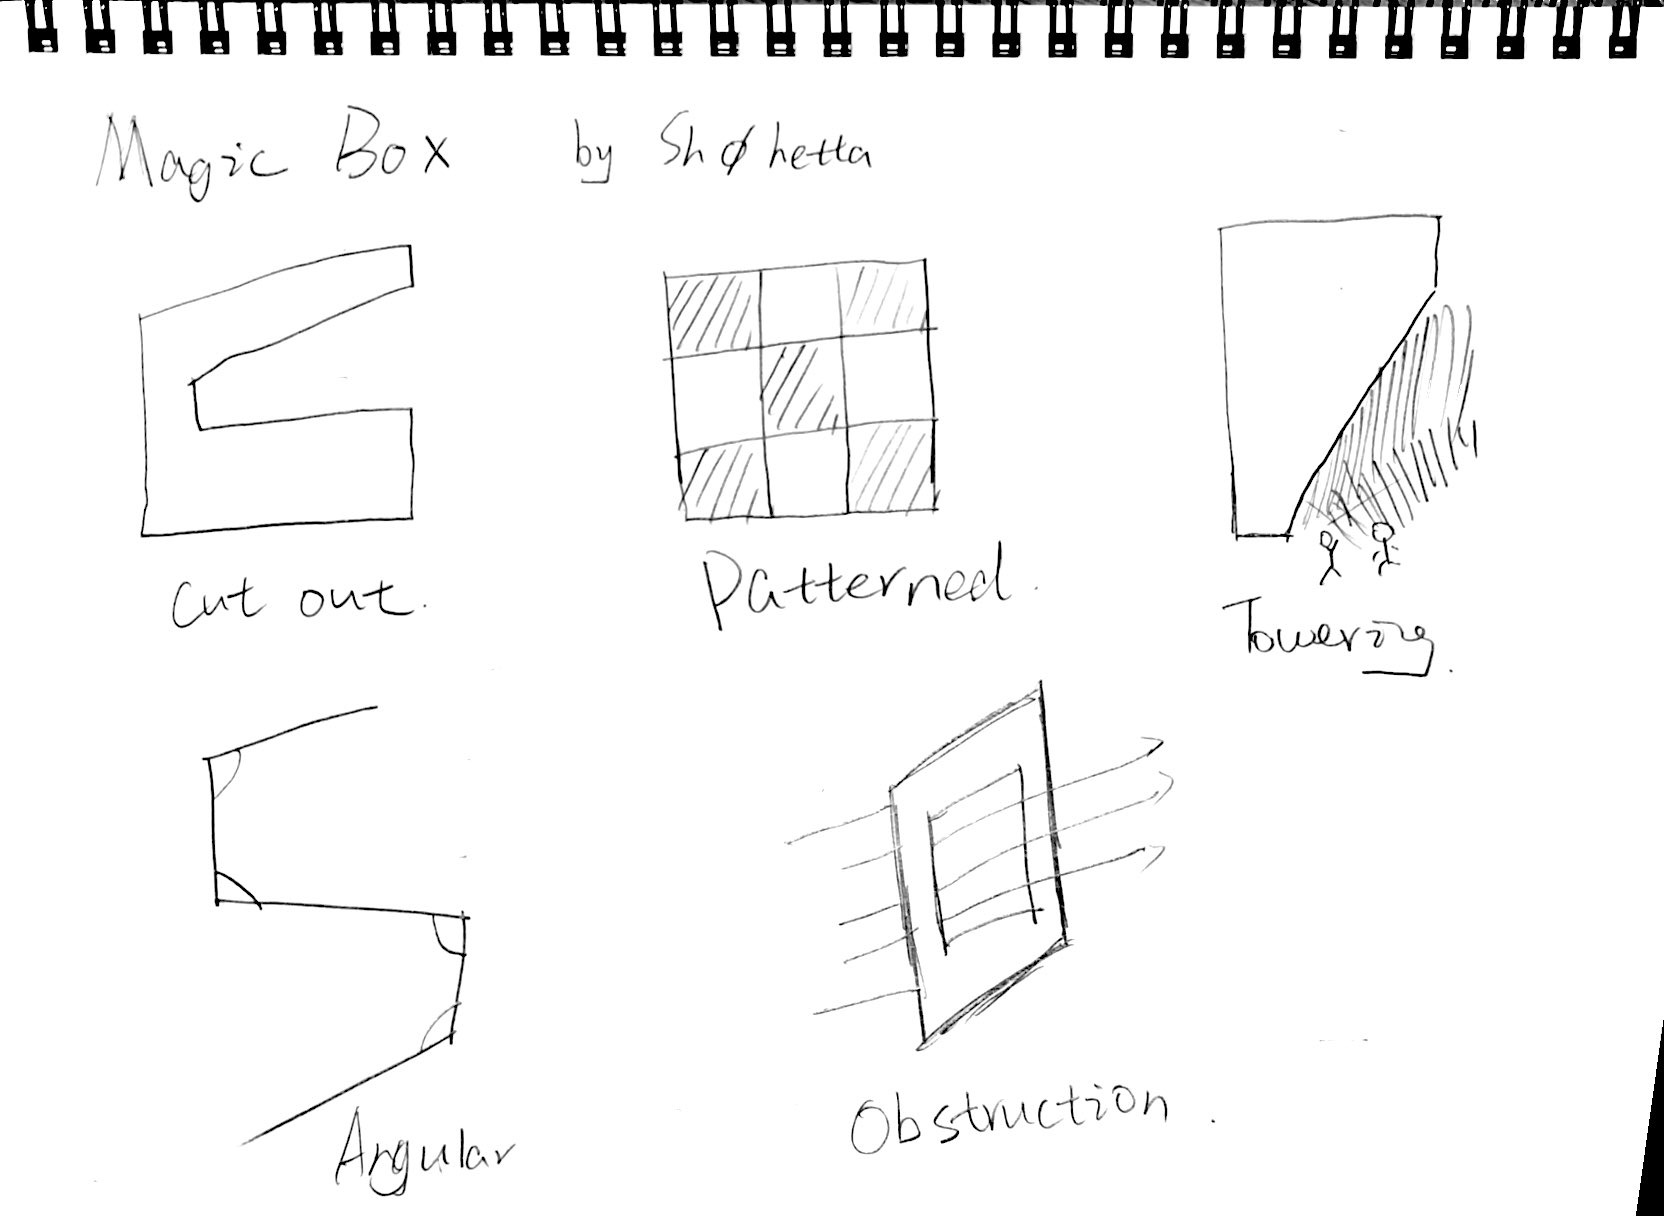 Magic Box by Shøhetta
cut out.
Patterned.
Towering.
Angular
Obstruction.